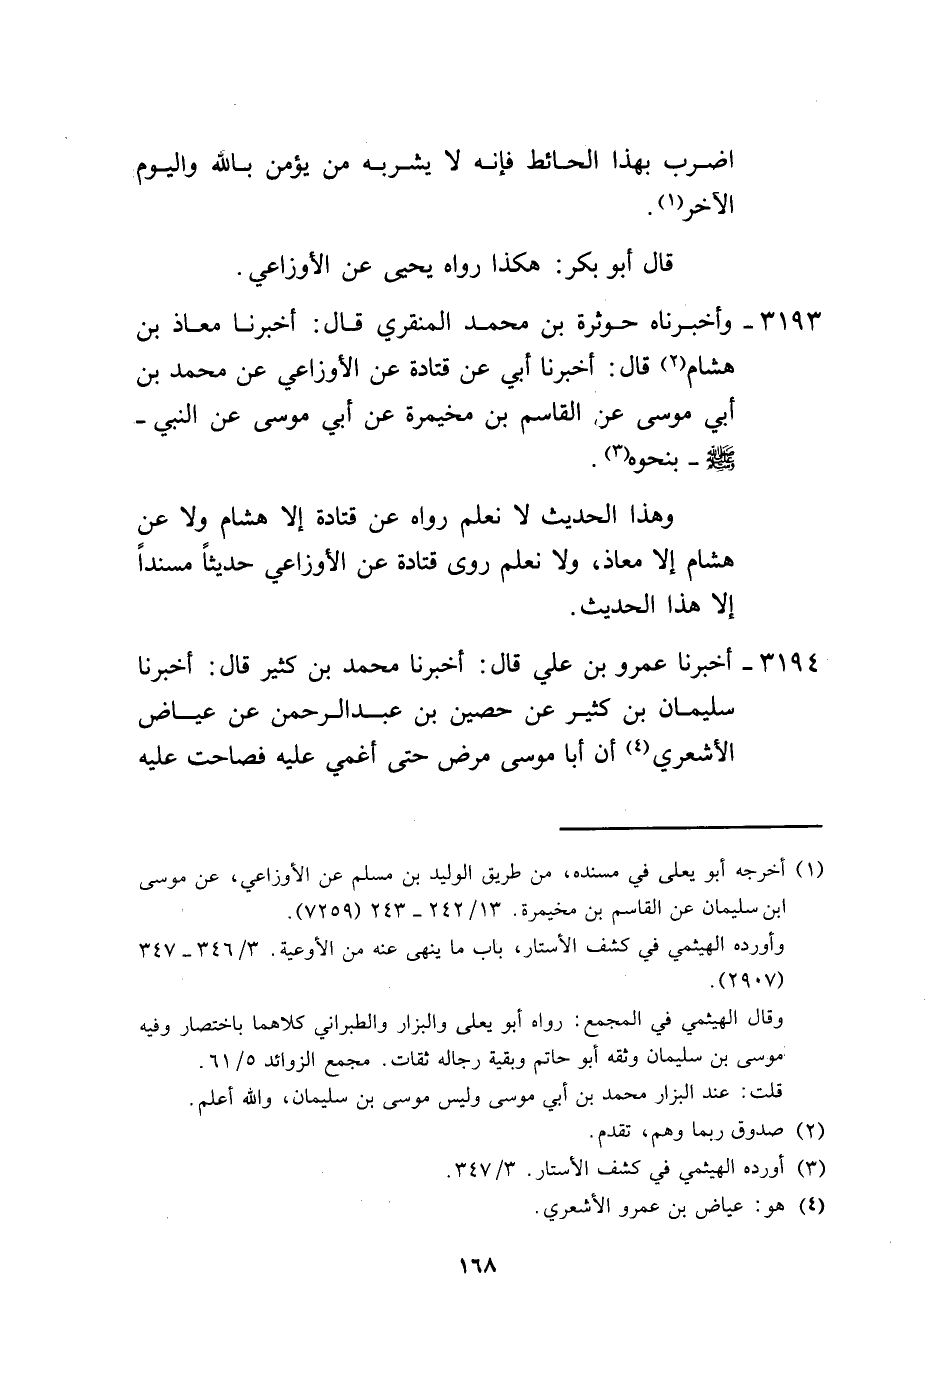 اضرب بهذا الحائط فإنه لا يشربه من يؤمن بالله واليوم
الآخر(١).
قال أبو بكر: هكذا رواه يحيى عن الأوزاعي.
٣١٩٣ - وأخبرناه حوثرة بن محمد المنقري قال: أخبرنا معاذ بن
هشام(٢) قال: أخبرنا أبي عن قتادة عن الأوزاعي عن محمد بن
أبي موسى عن القاسم بن مخيمرة عن أبي موسى عن النبي -
ﷺ - بنحوه(٣).
وهذا الحديث لا نعلم رواه عن قتادة إلا هشام ولا عن
هشام إلا معاذ، ولا نعلم روى قتادة عن الأوزاعي حديثاً مسنداً
إلا هذا الحديث.
٣١٩٤ - أخبرنا عمرو بن علي قال: أخبرنا محمد بن كثير قال: أخبرنا
سليمان بن كثير عن حصين بن عبدالرحمن عن عياض
الأشعري(٤) أن أبا موسى مرض حتى أغمي عليه فصاحت عليه
(١) أخرجه أبو يعلى في مسنده، من طريق الوليد بن مسلم عن الأوزاعي، عن موسى
ابن سليمان عن القاسم بن مخيمرة. ١٣/ ٢٤٢ - ٢٤٣ (٧٢٥٩).
وأورده الهيثمي في كشف الأستار، باب ما ينهى عنه من الأوعية. ٣/ ٣٤٦ - ٣٤٧
(٢٩٠٧).
وقال الهيثمي في المجمع: رواه أبو يعلى والبزار والطبراني كلاهما باختصار وفيه
موسى بن سليمان وثقه أبو حاتم وبقية رجاله ثقات. مجمع الزوائد ٥/ ٦١.
قلت: عند البزار محمد بن أبي موسى وليس موسى بن سليمان، والله أعلم.
(٢) صدوق ربما وهم، تقدم.
(٣) أورده الهيثمي في كشف الأستار. ٣/ ٣٤٧.
(٤) هو: عياض بن عمرو الأشعري.
١٦٨